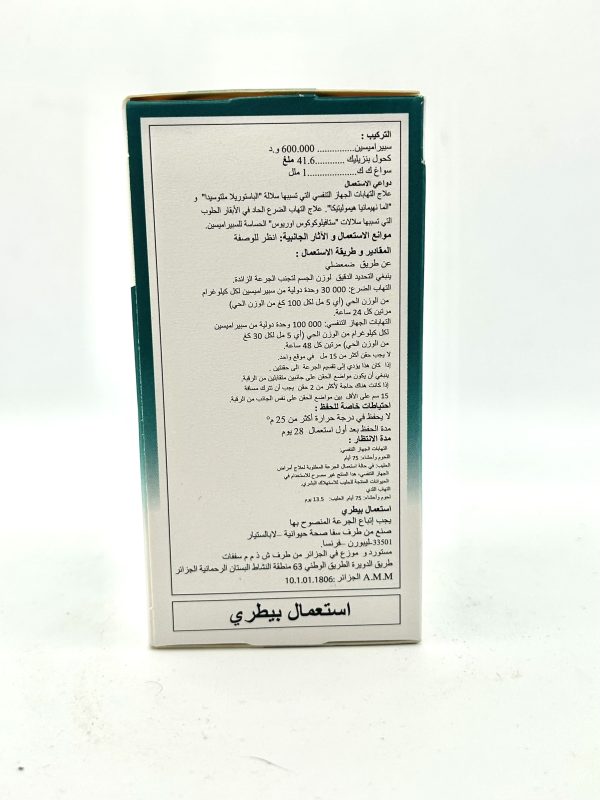 التركيب :
سبيراميسين............... 600.000 و.د
كحول بنزيليك ............41.6 ملغ
سواغ ك ك....................1 ملل
دواعي الاستعمال
علاج التهابات الجهاز التنفسي التي تسببها سلالة "الباستوريلا ملتوسيدا" و
"الما نهيمانيا هيموليتيكا". علاج التهاب الضرع الحاد في الأبقار الحلوب
التي تسببها سلالات "ستافيلوكوكوس اوريوس" الحساسة للسبيراميسين.
موانع الاستعمال و الآثار الجانبية: انظر للوصفة
المقادير و طريقة الاستعمال :
عن طريق ضمعضلي
ينبغي التحديد الدقيق لوزن الجسم لتجنب الجرعة الزائدة.
التهاب الضرع: 30 000 وحدة دولية من سبيراميسين لكل كيلوغرام
من الوزن الحي (أي 5 مل لكل 100 كغ من الوزن الحي)
مرتين كل 24 ساعة.
التهابات الجهاز التنفسي: 100 000 وحدة دولية من سبيراميسين
لكل كيلوغرام من الوزن الحي (أي 5 مل لكل 30 كغ
من الوزن الحي) مرتين كل 48 ساعة.
لا يجب حقن أكثر من 15 مل في موقع واحد.
إذا كان هذا يؤدي إلى تقسيم الجرعة الى حقنتين .
ينبغي أن يكون مواضع الحقن على جانبين متقابلين من الرقبة.
إذا كانت هناك حاجة لأكثر من 2 حقن يجب أن تترك مسافة
15 سم على الأقل بين مواضع الحقن على نفس الجانب من الرقبة.
احتياطات خاصة للحفظ :
لا يحفظ في درجة حرارة أكثر من 25 م°
مدة الحفظ بعد أول استعمال 28 يوم
مدة الانتظار :
التهابات الجهاز التنفسي.
اللحوم وأحشاء: 75 أيام
الحليب: في حالة استعمال الجرعة المطلوبة لعلاج أمراض
الجهاز التنفسي، هذا المنتج غير مصرح للاستخدام في
الحيوانات المنتجة للحليب للاستهلاك البشري.
التهاب الثدي
لحوم وأحشاء: 75 أيام الحليب: 13.5 يوم
استعمال بيطري
يجب إتباع الجرعة المنصوح بها
صنع من طرف سفا صحة حيوانية –لابالستيار
33501-ليبورن –فرنسا.
مستورد و موزع في الجزائر من طرف ش ذ م م سففات
طريق الدويرة الطريق الوطني 63 منطقة النشاط البستان الرحمانية الجزائر
A.M.M الجزائر :10.1.01.1806
استعمال بيطري